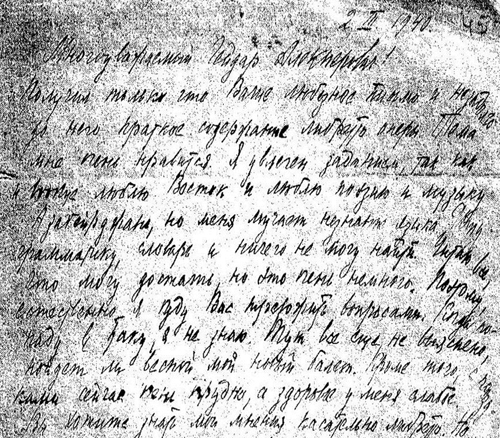 2 III 1940. 45
Многоуважаемый Гейдар!
Получил только что Ваше любезное письмо и
из него краткое содержание либретто оперы. Тема
мне очень нравится. Я увлечен заданием, так как
я вообще люблю Восток и люблю поэзию и музыку
Азербайджана, но меня мучает незнание языка.
грамматику, словарь и ничего не могу найти. Читаю все,
что могу достать, но это очень немного. Поэтому,
естественно я буду Вас тревожить вопросами. Когда
буду в Баку, я не знаю. Тут все еще не выяснено,
пойдет ли весной мой новый балет. Кроме того,
сейчас очень трудно, а здоровье у меня слабое.
Вы хотите знать мои мнения касательно либретто. Но